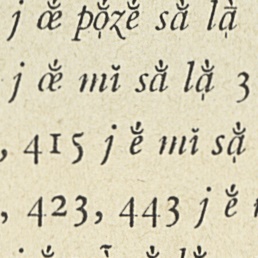 j œ̆̇ pọ̆̇zĕ̇ să̇ lạ̀
j œ̆̇ mĭ să̇ lặ̇ 3
, 415 j ẹ̆̇ mĭ sặ̇
, 423, 443 j ẹ̆̇